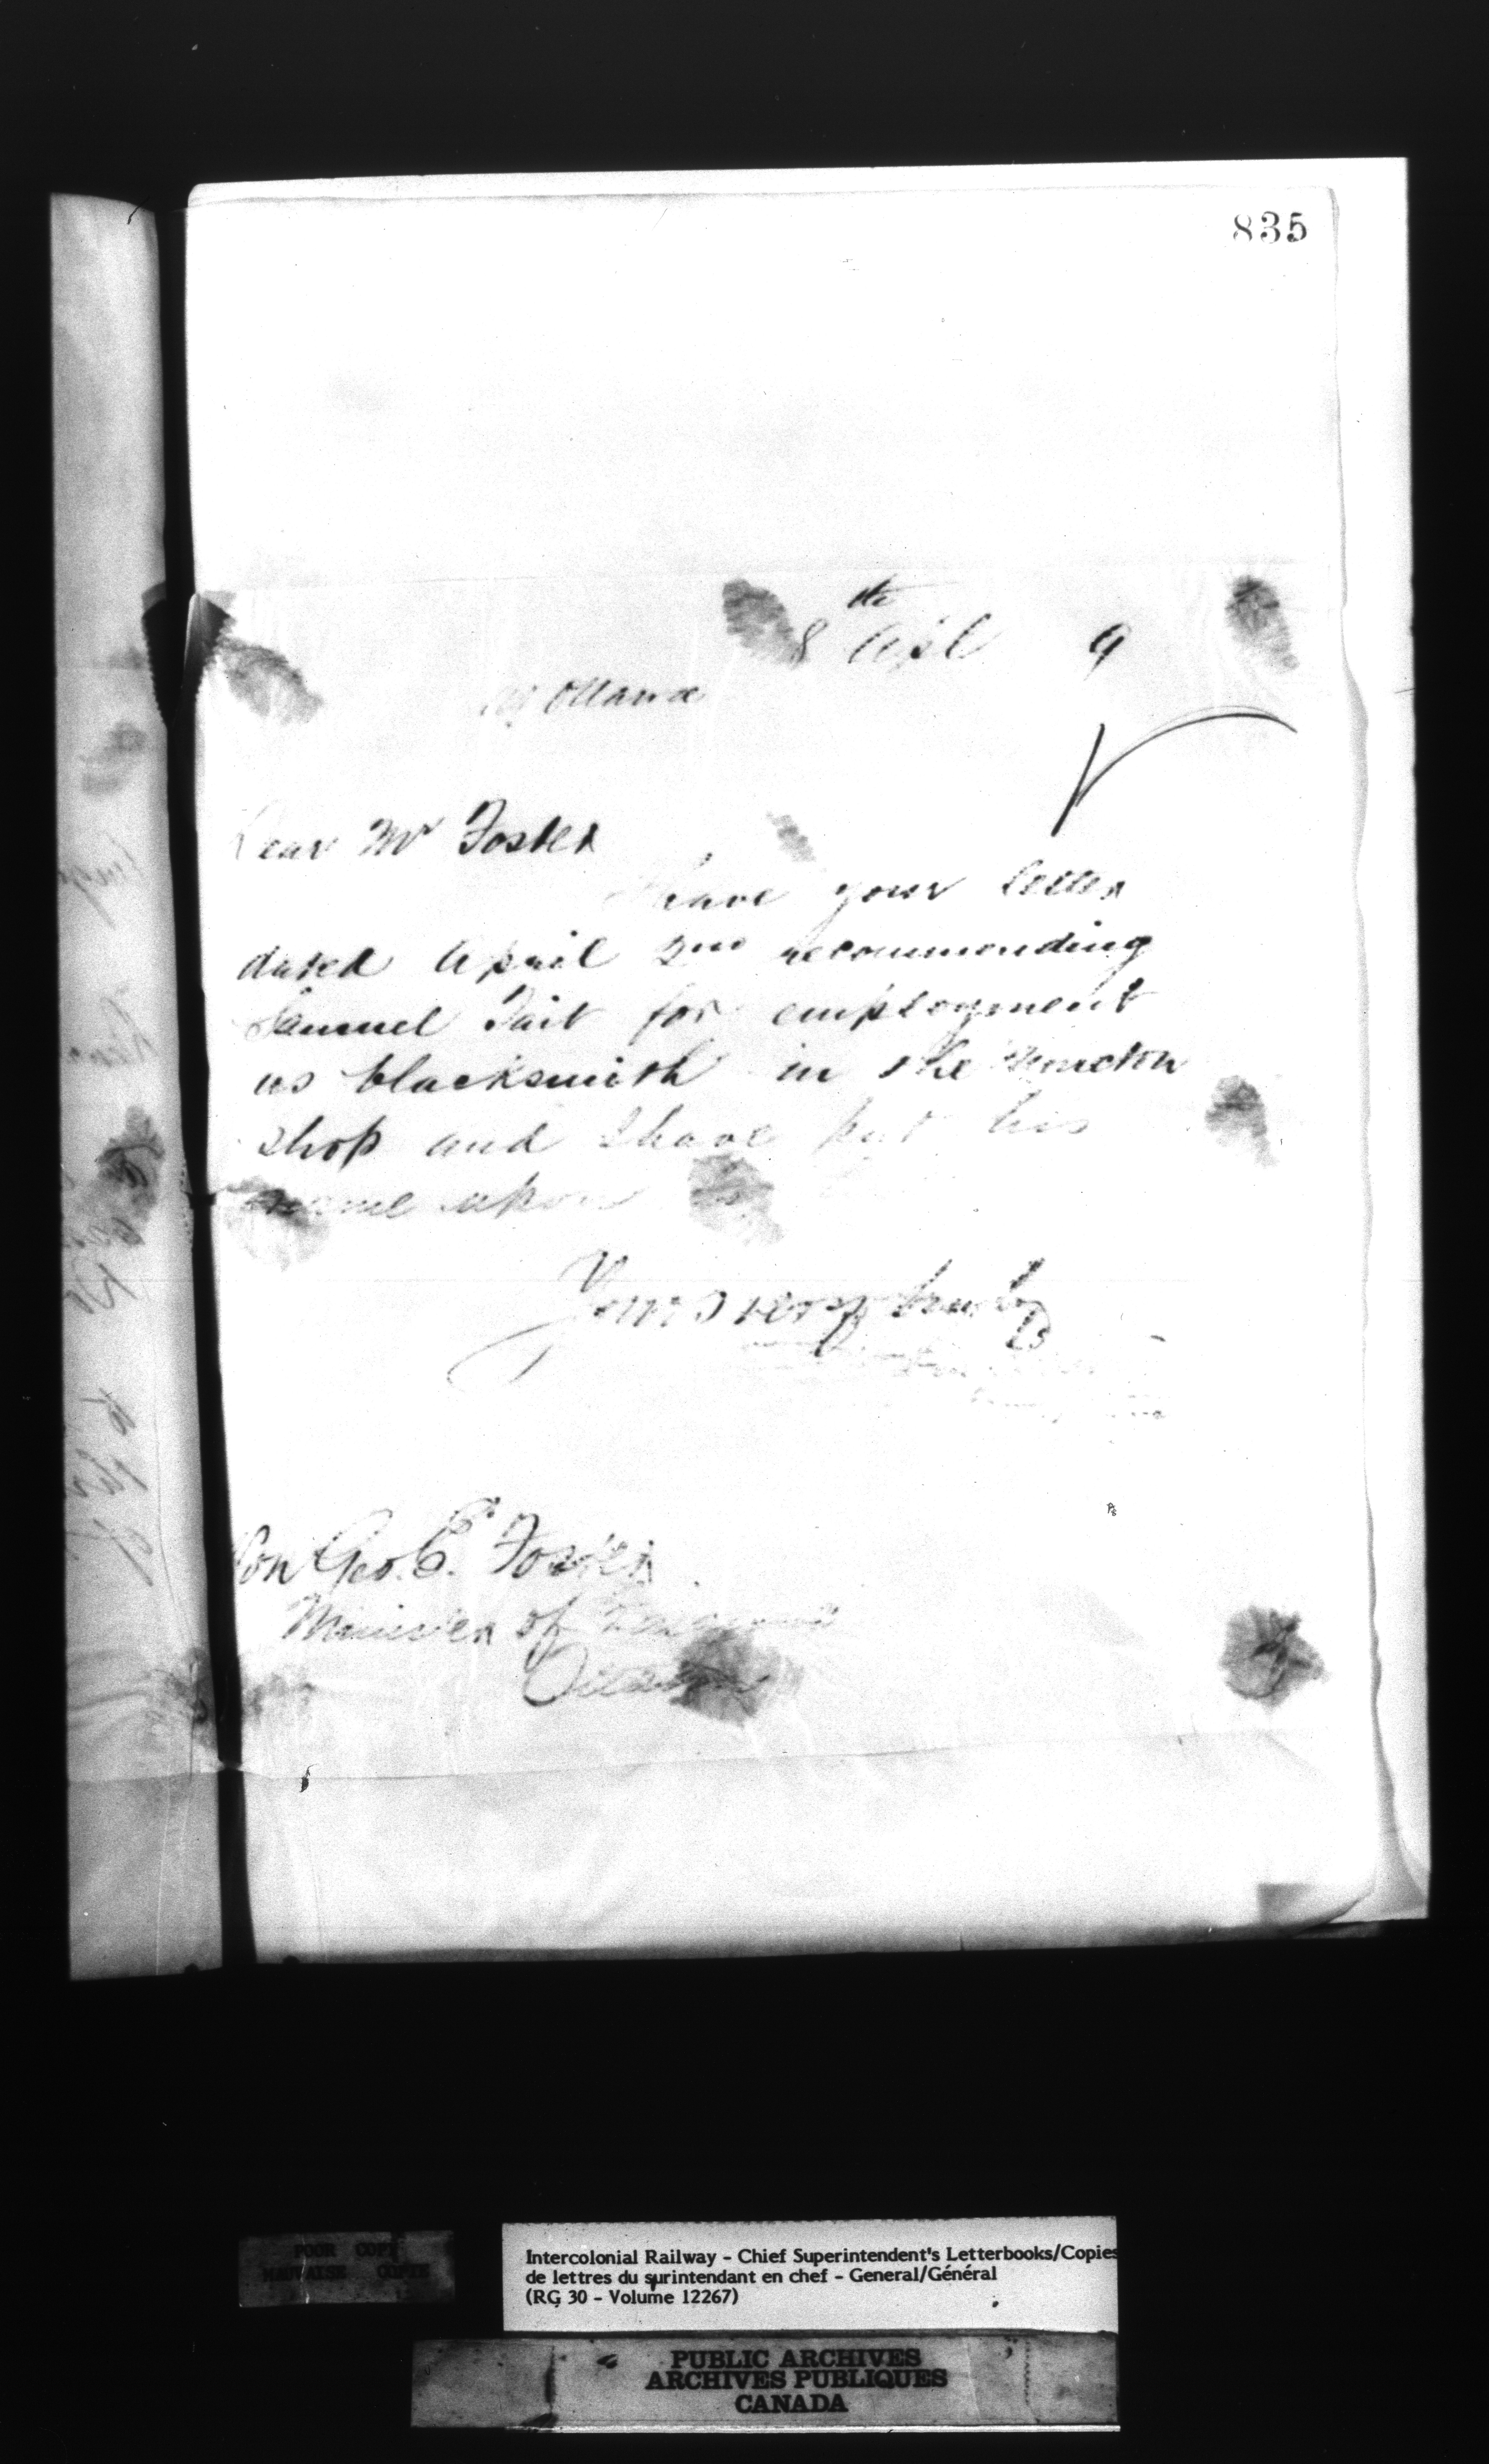 835
8th Apl 9
Ottawa
Dear Mr Foster
have your letter
dated April 2nd recommending
Samuel Tait for employment
as blacksmith in the Moncton
shop and I have put his
name upon
Yours very truly
Hon Geo. E. Foster
Minister of Finance
Ottawa
POOR COPY
MAUVAISE COPIE
Intercolonial Railway - Chief Superintendent's Letterbooks/Copies
de lettres du surintendant en chef - General/Général
(RG 30 - Volume 12267)
PUBLIC ARCHIVES
ARCHIVES PUBLIQUES
CANADA